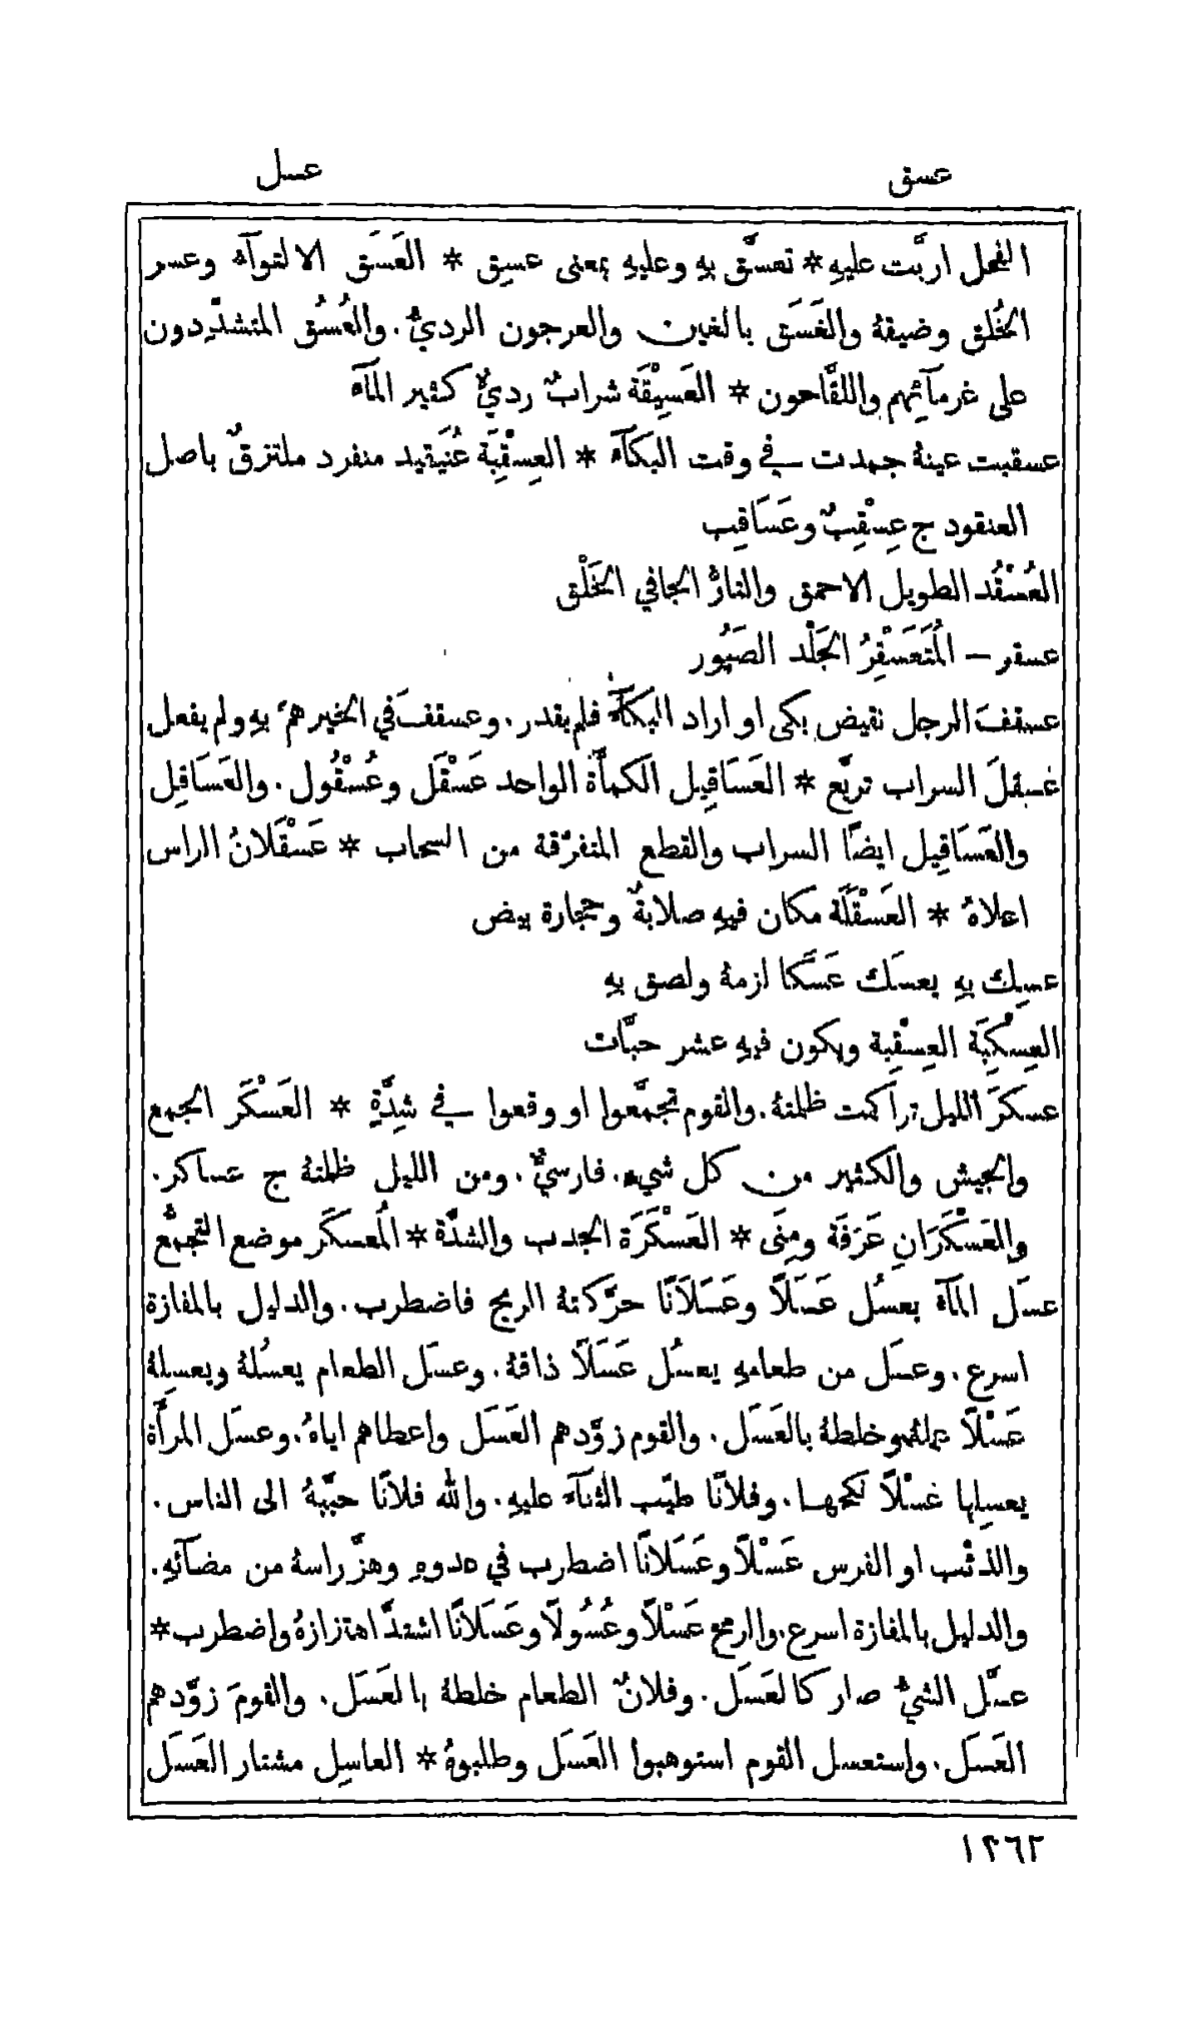 عسق
عسل
الفحل اربَّت عليهِ * تعسَّق بهِ وعليهِ بمعنى عسِق * العَسَق الالتوآء وعسر
الخُلق وضيقهُ والغَسَق بالغين والعرجون الرديُّ. والعُسُق المتشدِّدون
على غرمآئِهم واللقَّاحون * العَسِيْقَة شرابٌ رديٌّ كثير المآء
عسقبت عينهُ جمدت في وقت البكآء * العِسْقِبَة عُنَيقيد منفرد ملتزقٌ باصل
العنقود ج عِسْقِبٌ وعَسَاقِب
العُسْقُد الطويل الاحمق والتارُّ الجافي الخَلْق
عسقر – المُتَعَسْقِرُ الجَلْد الصَبُور
عسقفَ الرجل نقيض بكى او اراد البكآءَ فلم يقدر. وعسقفَ في الخير همَّ بهِ ولم يفعل
عسقلَ السراب تريَّع * العَسَاقِيل الكمأَة الواحد عَسْقَل وعُسْقُول. والعَسَاقِل
والعَسَاقِيل ايضًا السراب والقطع المتفرّقة من السحاب * عَسْقَلانُ الراس
اعلاهُ * العَسْقَلَة مكان فيهِ صلابةٌ وحجارة بيض
عسِك بهِ يعسَك عَسَكا لزمهُ ولصق بهِ
العِسْكِبَة العِسْقِبة ويكون فيهِ عشر حبَّات
عسكرَ الليل تراكمت ظلمتهُ. والقوم تجمَّعوا او وقعوا في شِدَّةٍ * العَسْكَر الجمع
والجيش والكثير من كل شيءٍ. فارسيٌّ. ومن الليل ظلمتهُ ج عساكر.
والعَسْكَرَانِ عَرَفَة ومِنَى * العَسْكَرَة الجدب والشدَّة * المُعسكَر موضع التجمُّع
عسَل المآء يعسُل عَسَلًا وعَسَلَانًا حرَّكتهُ الريح فاضطرب. والدليل بالمفازة
اسرع. وعسَل من طعامهِ يعسُل عَسَلًا ذاقهُ. وعسَل الطعام يعسُلهُ ويعسِلهُ
عَسْلًا عملهُ وخلطهُ بالعَسَل. والقوم زوَّدهم العَسَل واعطاهم اياهُ. وعسَل المرأَة
يعسِلها عَسْلًا نكحها. وفلانًا طيَّب الثنآء عليهِ. والله فلانًا حبَّبهُ الى الناس.
والذئب او الفرس عَسْلًا وعَسَلانًا اضطرب في عدوهِ وهزَّ راسهُ من مضآئِهِ.
والدليل بالمفازة اسرع. والرمح عَسْلًا وعُسُولًا وعَسَلَانًا اشتدَّ اهتزازهُ واضطرب *
عسَّل الشيُّ صار كالعَسَل. وفلانٌ الطعام خلطهُ بالعَسَل. والقومَ زوَّدهم
العَسَل. واستعسل القوم استوهبوا العَسَل وطلبوهُ * العاسِل مشتار العَسَل
١٢٦٢